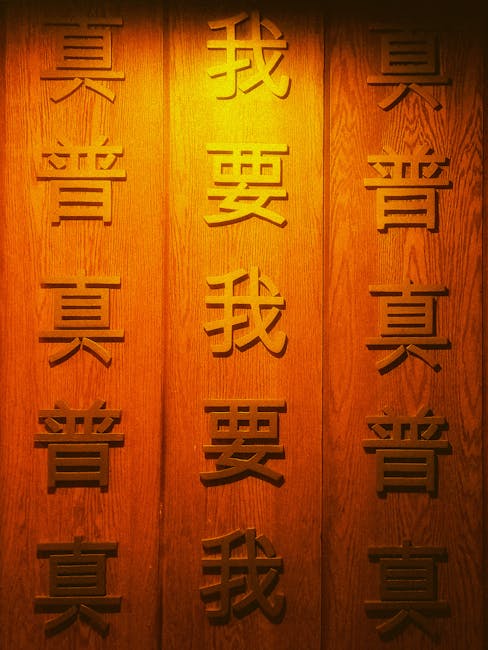 真普真普真
我要我要我
真普真普真